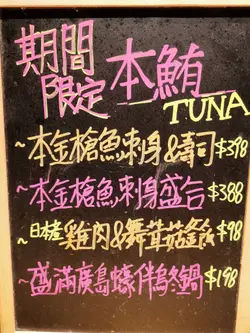 期間
限定
本鮪
TUNA
~本金槍魚刺身&壽司 $398
~本金槍魚刺身盛合 $388
~日本産 雞肉&舞茸菇釜飯 $98
~盛滿廣島蠔伴烏冬鍋 $198